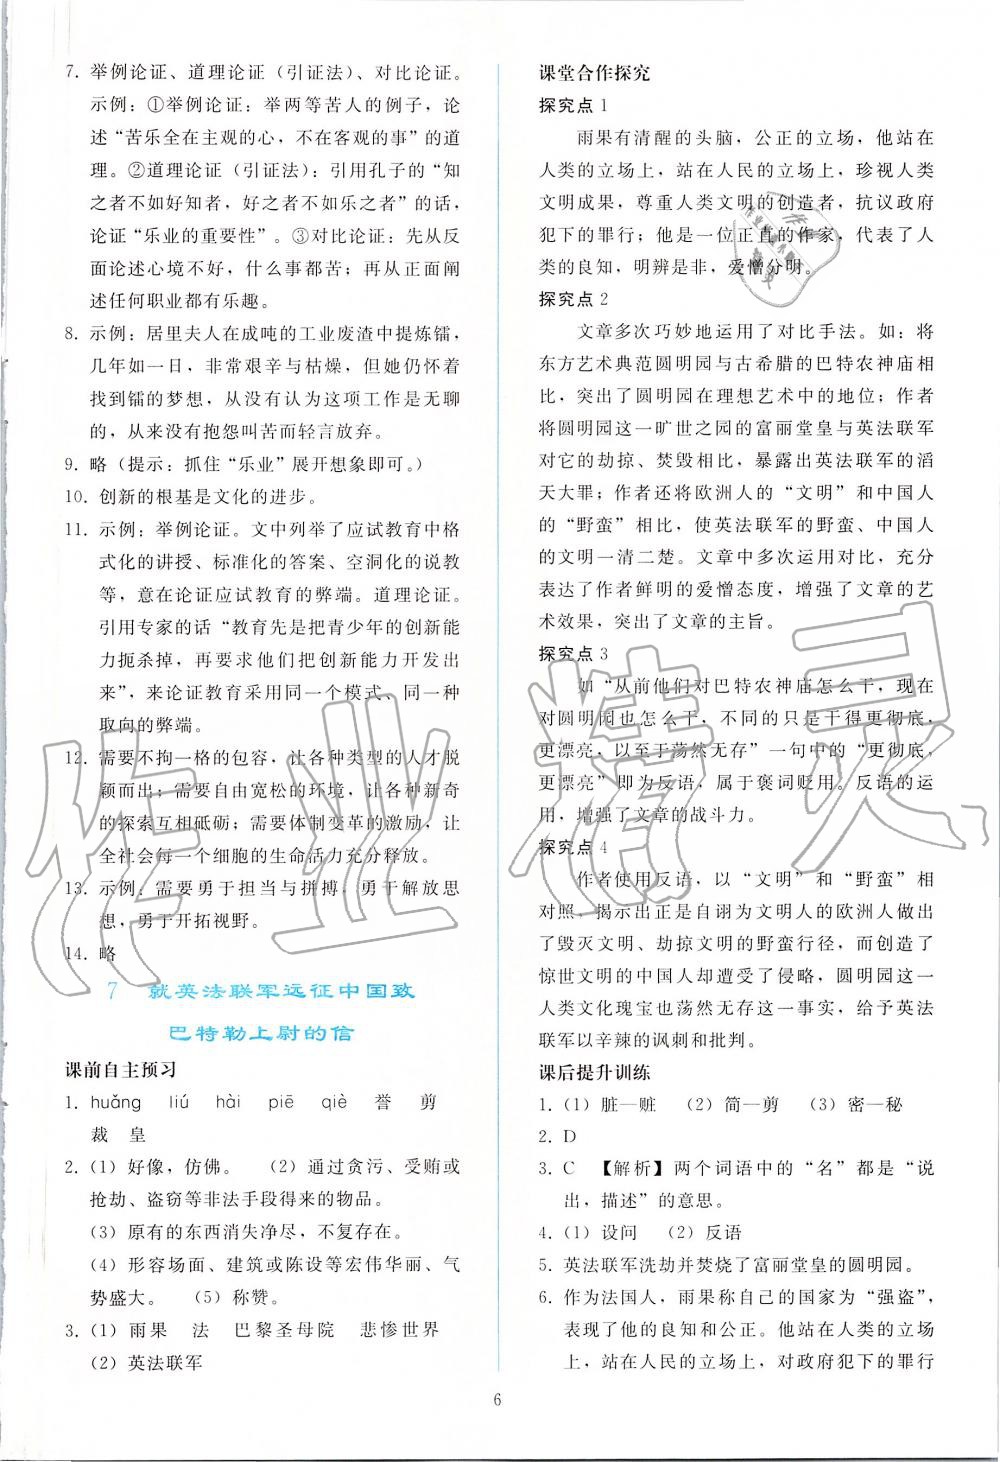 7. 举例论证、道理论证（引证法）、对比论证。
示例：①举例论证：举两等苦人的例子，论
述“苦乐全在主观的心，不在客观的事”的道
理。②道理论证（引证法）：引用孔子的“知
之者不如好知者，好之者不如乐之者”的话，
论证“乐业的重要性”。③对比论证：先从反
面论述心境不好，什么事都苦；再从正面阐
述任何职业都有乐趣。
8. 示例：居里夫人在成吨的工业废渣中提炼镭，
几年如一日，非常艰辛与枯燥，但她仍怀着
找到镭的梦想，从没有认为这项工作是无聊
的，从来没有抱怨叫苦而轻言放弃。
9. 略（提示：抓住“乐业”展开想象即可。）
10. 创新的根基是文化的进步。
11. 示例：举例论证。文中列举了应试教育中格
式化的讲授、标准化的答案、空洞化的说教
等，意在论证应试教育的弊端。道理论证。
引用专家的话“教育先是把青少年的创新能
力扼杀掉，再要求他们把创新能力开发出
来”，来论证教育采用同一个模式、同一种
取向的弊端。
12. 需要不拘一格的包容，让各种类型的人才脱
颖而出；需要自由宽松的环境，让各种新奇
的探索互相砥砺；需要体制变革的激励，让
全社会每一个细胞的生命活力充分释放。
13. 示例：需要勇于担当与拼搏，勇于解放思
想，勇于开拓视野。
14. 略
7 就英法联军远征中国致
巴特勒上尉的信
课前自主预习
1. huǎng liú hài piē qiè 誉 剪
裁 皇
2.（1）好像，仿佛。 （2）通过贪污、受贿或
抢劫、盗窃等非法手段得来的物品。
（3）原有的东西消失净尽，不复存在。
（4）形容场面、建筑或陈设等宏伟华丽、气
势盛大。 （5）称赞。
3.（1）雨果 法 巴黎圣母院 悲惨世界
（2）英法联军
课堂合作探究
探究点 1
雨果有清醒的头脑，公正的立场，他站在
人类的立场上，站在人民的立场上，珍视人类
文明成果，尊重人类文明的创造者，抗议政府
犯下的罪行；他是一位正直的作家，代表了人
类的良知，明辨是非，爱憎分明。
探究点 2
文章多次巧妙地运用了对比手法。如：将
东方艺术典范圆明园与古希腊的巴特农神庙相
比，突出了圆明园在理想艺术中的地位；作者
将圆明园这一旷世之园的富丽堂皇与英法联军
对它的劫掠、焚毁相比，暴露出英法联军的滔
天大罪；作者还将欧洲人的“文明”和中国人
的“野蛮”相比，使英法联军的野蛮、中国人
的文明一清二楚。文章中多次运用对比，充分
表达了作者鲜明的爱憎态度，增强了文章的艺
术效果，突出了文章的主旨。
探究点 3
如“从前他们对巴特农神庙怎么干，现在
对圆明园也怎么干，不同的只是干得更彻底，
更漂亮，以至于荡然无存”一句中的“更彻底，
更漂亮”即为反语，属于褒词贬用。反语的运
用，增强了文章的战斗力。
探究点 4
作者使用反语，以“文明”和“野蛮”相
对照，揭示出正是自诩为文明人的欧洲人做出
了毁灭文明、劫掠文明的野蛮行径，而创造了
惊世文明的中国人却遭受了这一劫难，圆明园这一
人类文化瑰宝也毁于这一事实，给予英法
联军以辛辣的讽刺和批判。
课后提升训练
1.（1）脏—赃 （2）简—剪 （3）密—秘
2. D
3. C 【解析】两个词语中的“名”都是“说
出，描述”的意思。
4.（1）设问 （2）反语
5. 英法联军洗劫并焚烧了富丽堂皇的圆明园。
6. 作为法国人，雨果称自己的国家为“强盗”，
表现了他的良知和公正。他站在人类的立场
上，站在人民的立场上，对政府犯下的罪行
6
作业精灵